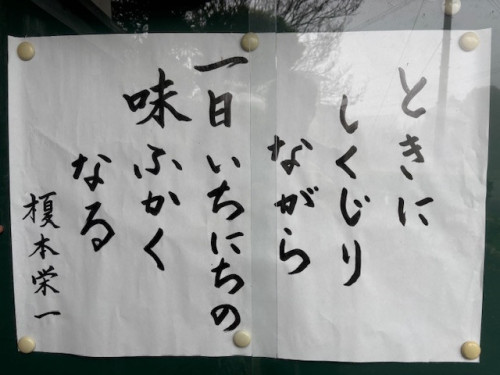 ときに
しくじり
ながら
一日いちにちの
味ふかく
なる
榎本栄一